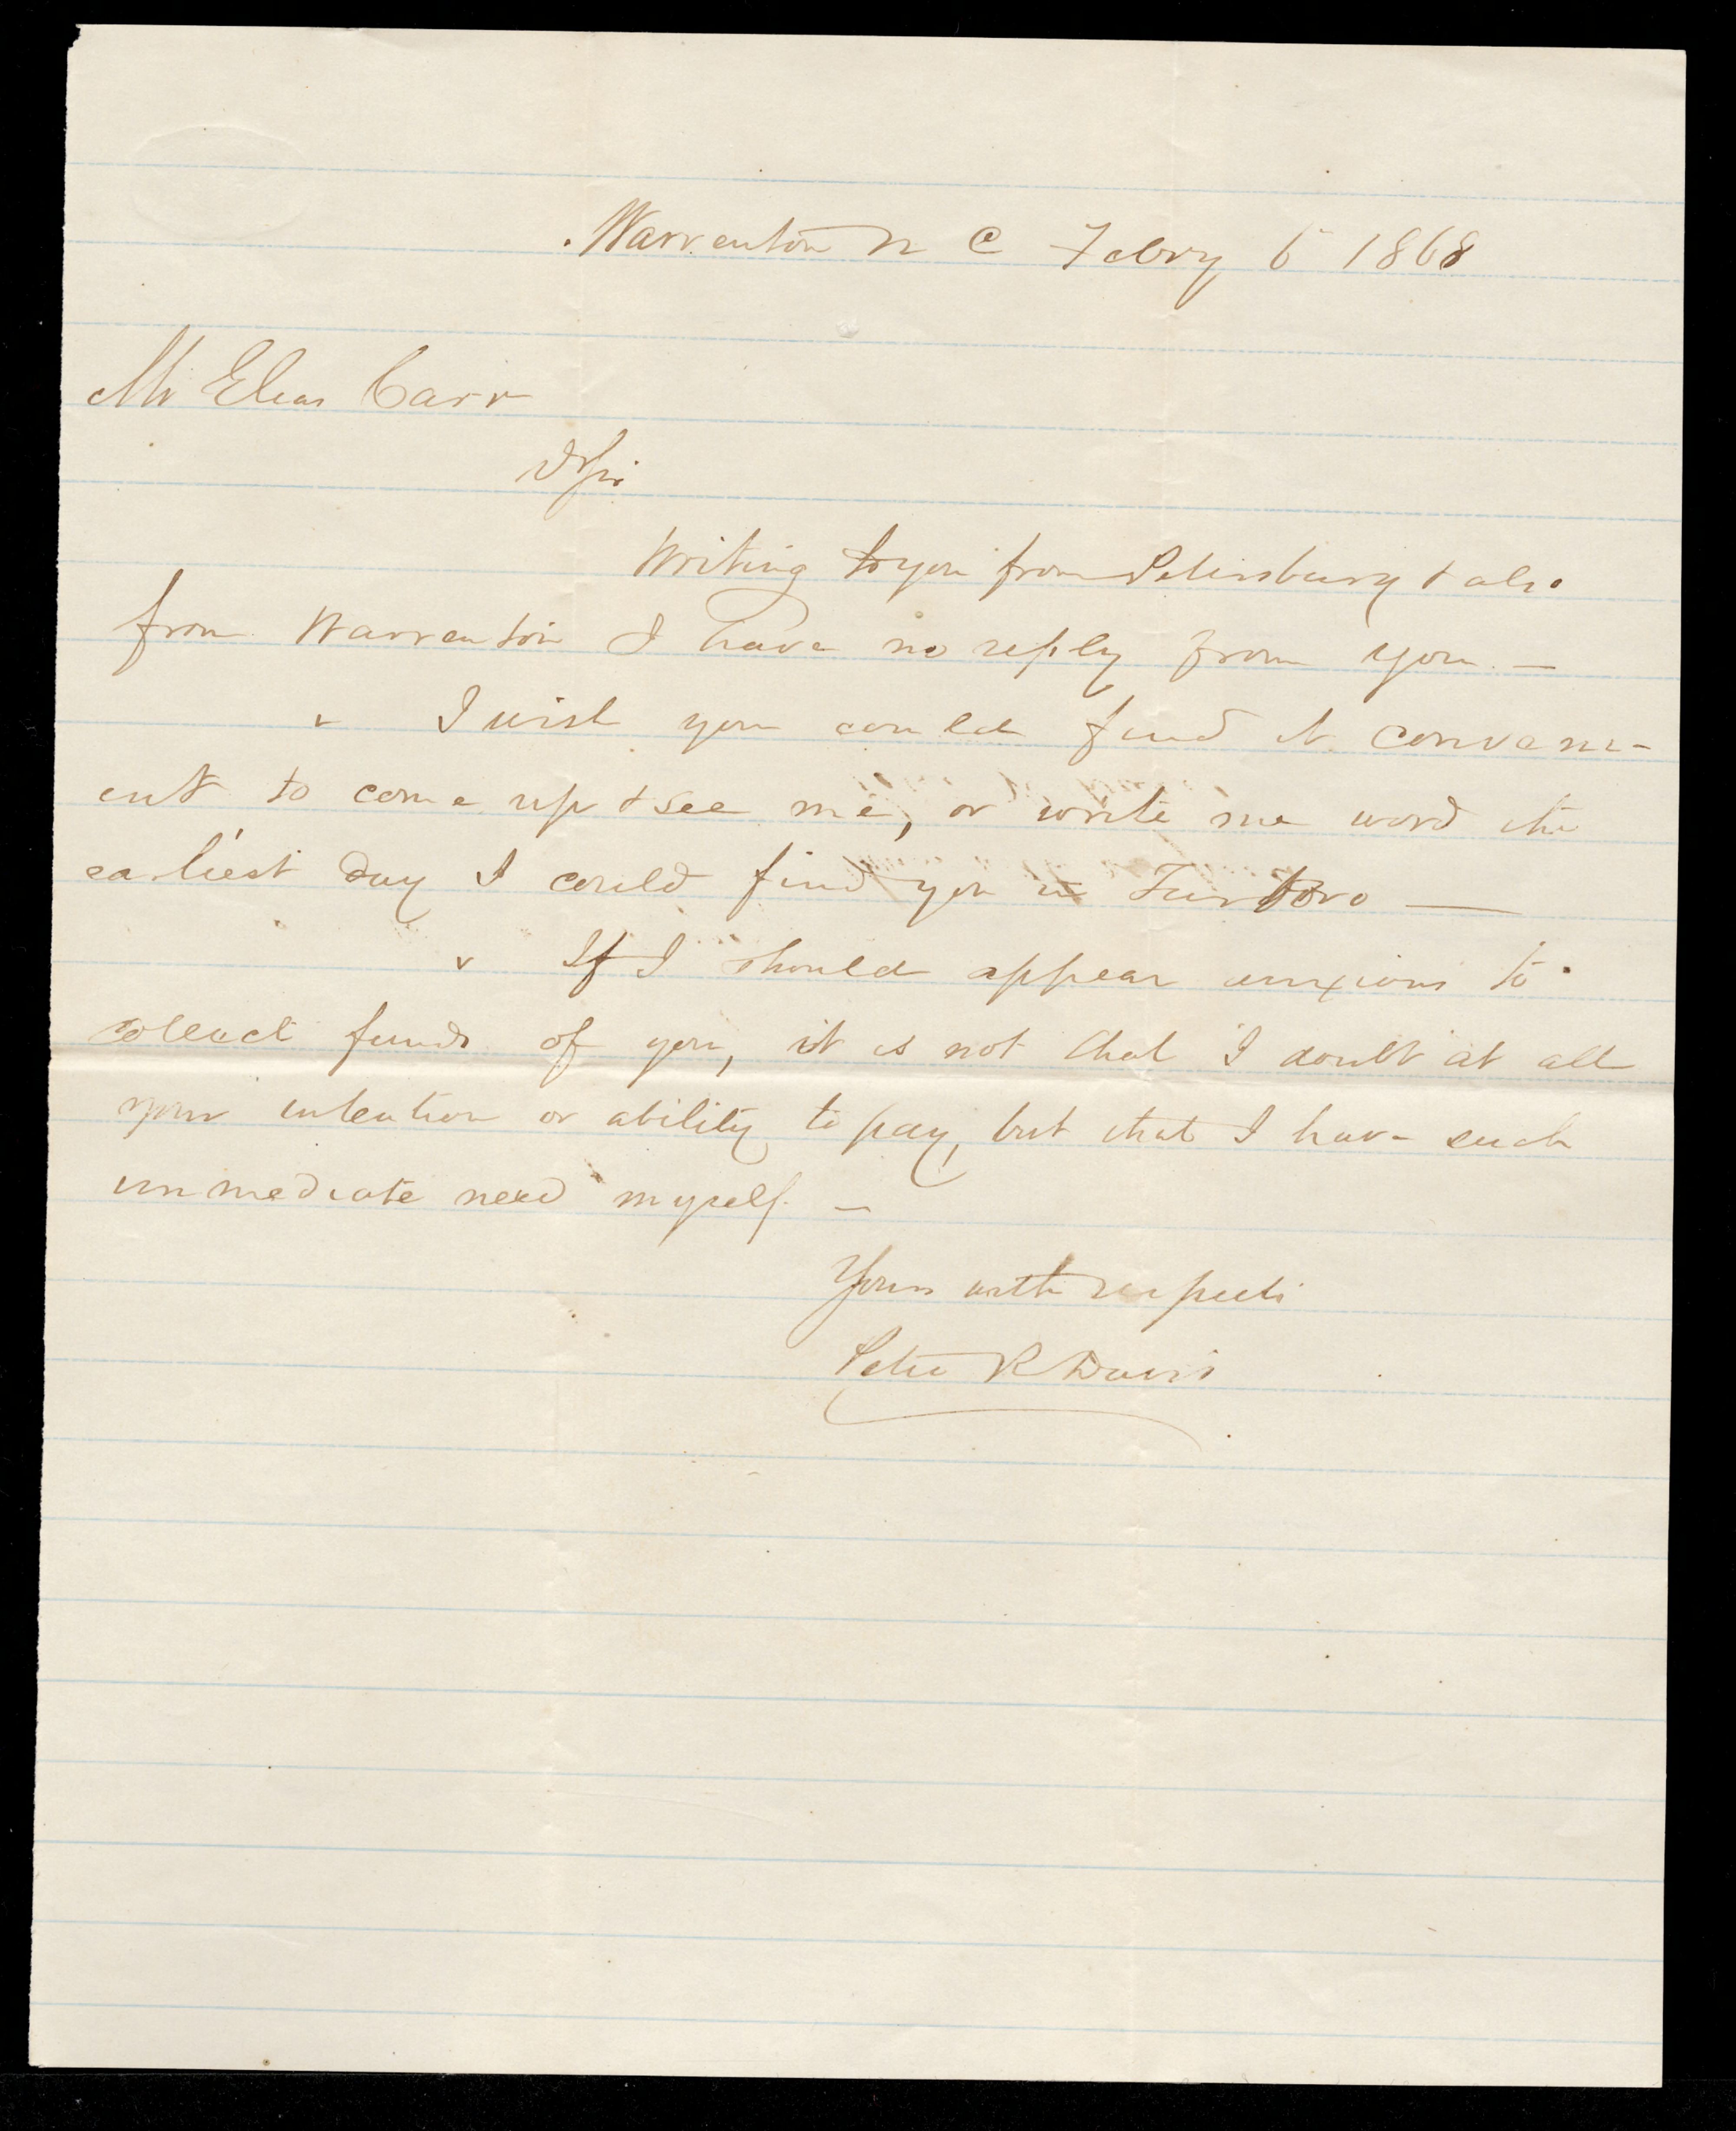 Warrenton N C Febry 6 1868
Mr Elias Carr
D Sir
Writing to you from Petersburg & also
from Warrenton I have no reply from you. —
I wish you could find it conveni-
ent to come up & see me, or write me word the
earliest day I could find you in Tarboro —
If I should appear anxious to
collect funds of you, it is not that I doubt at all
your intention or ability to pay, but that I have such
immediate need myself. —
Yours with respect
Peter R Davis